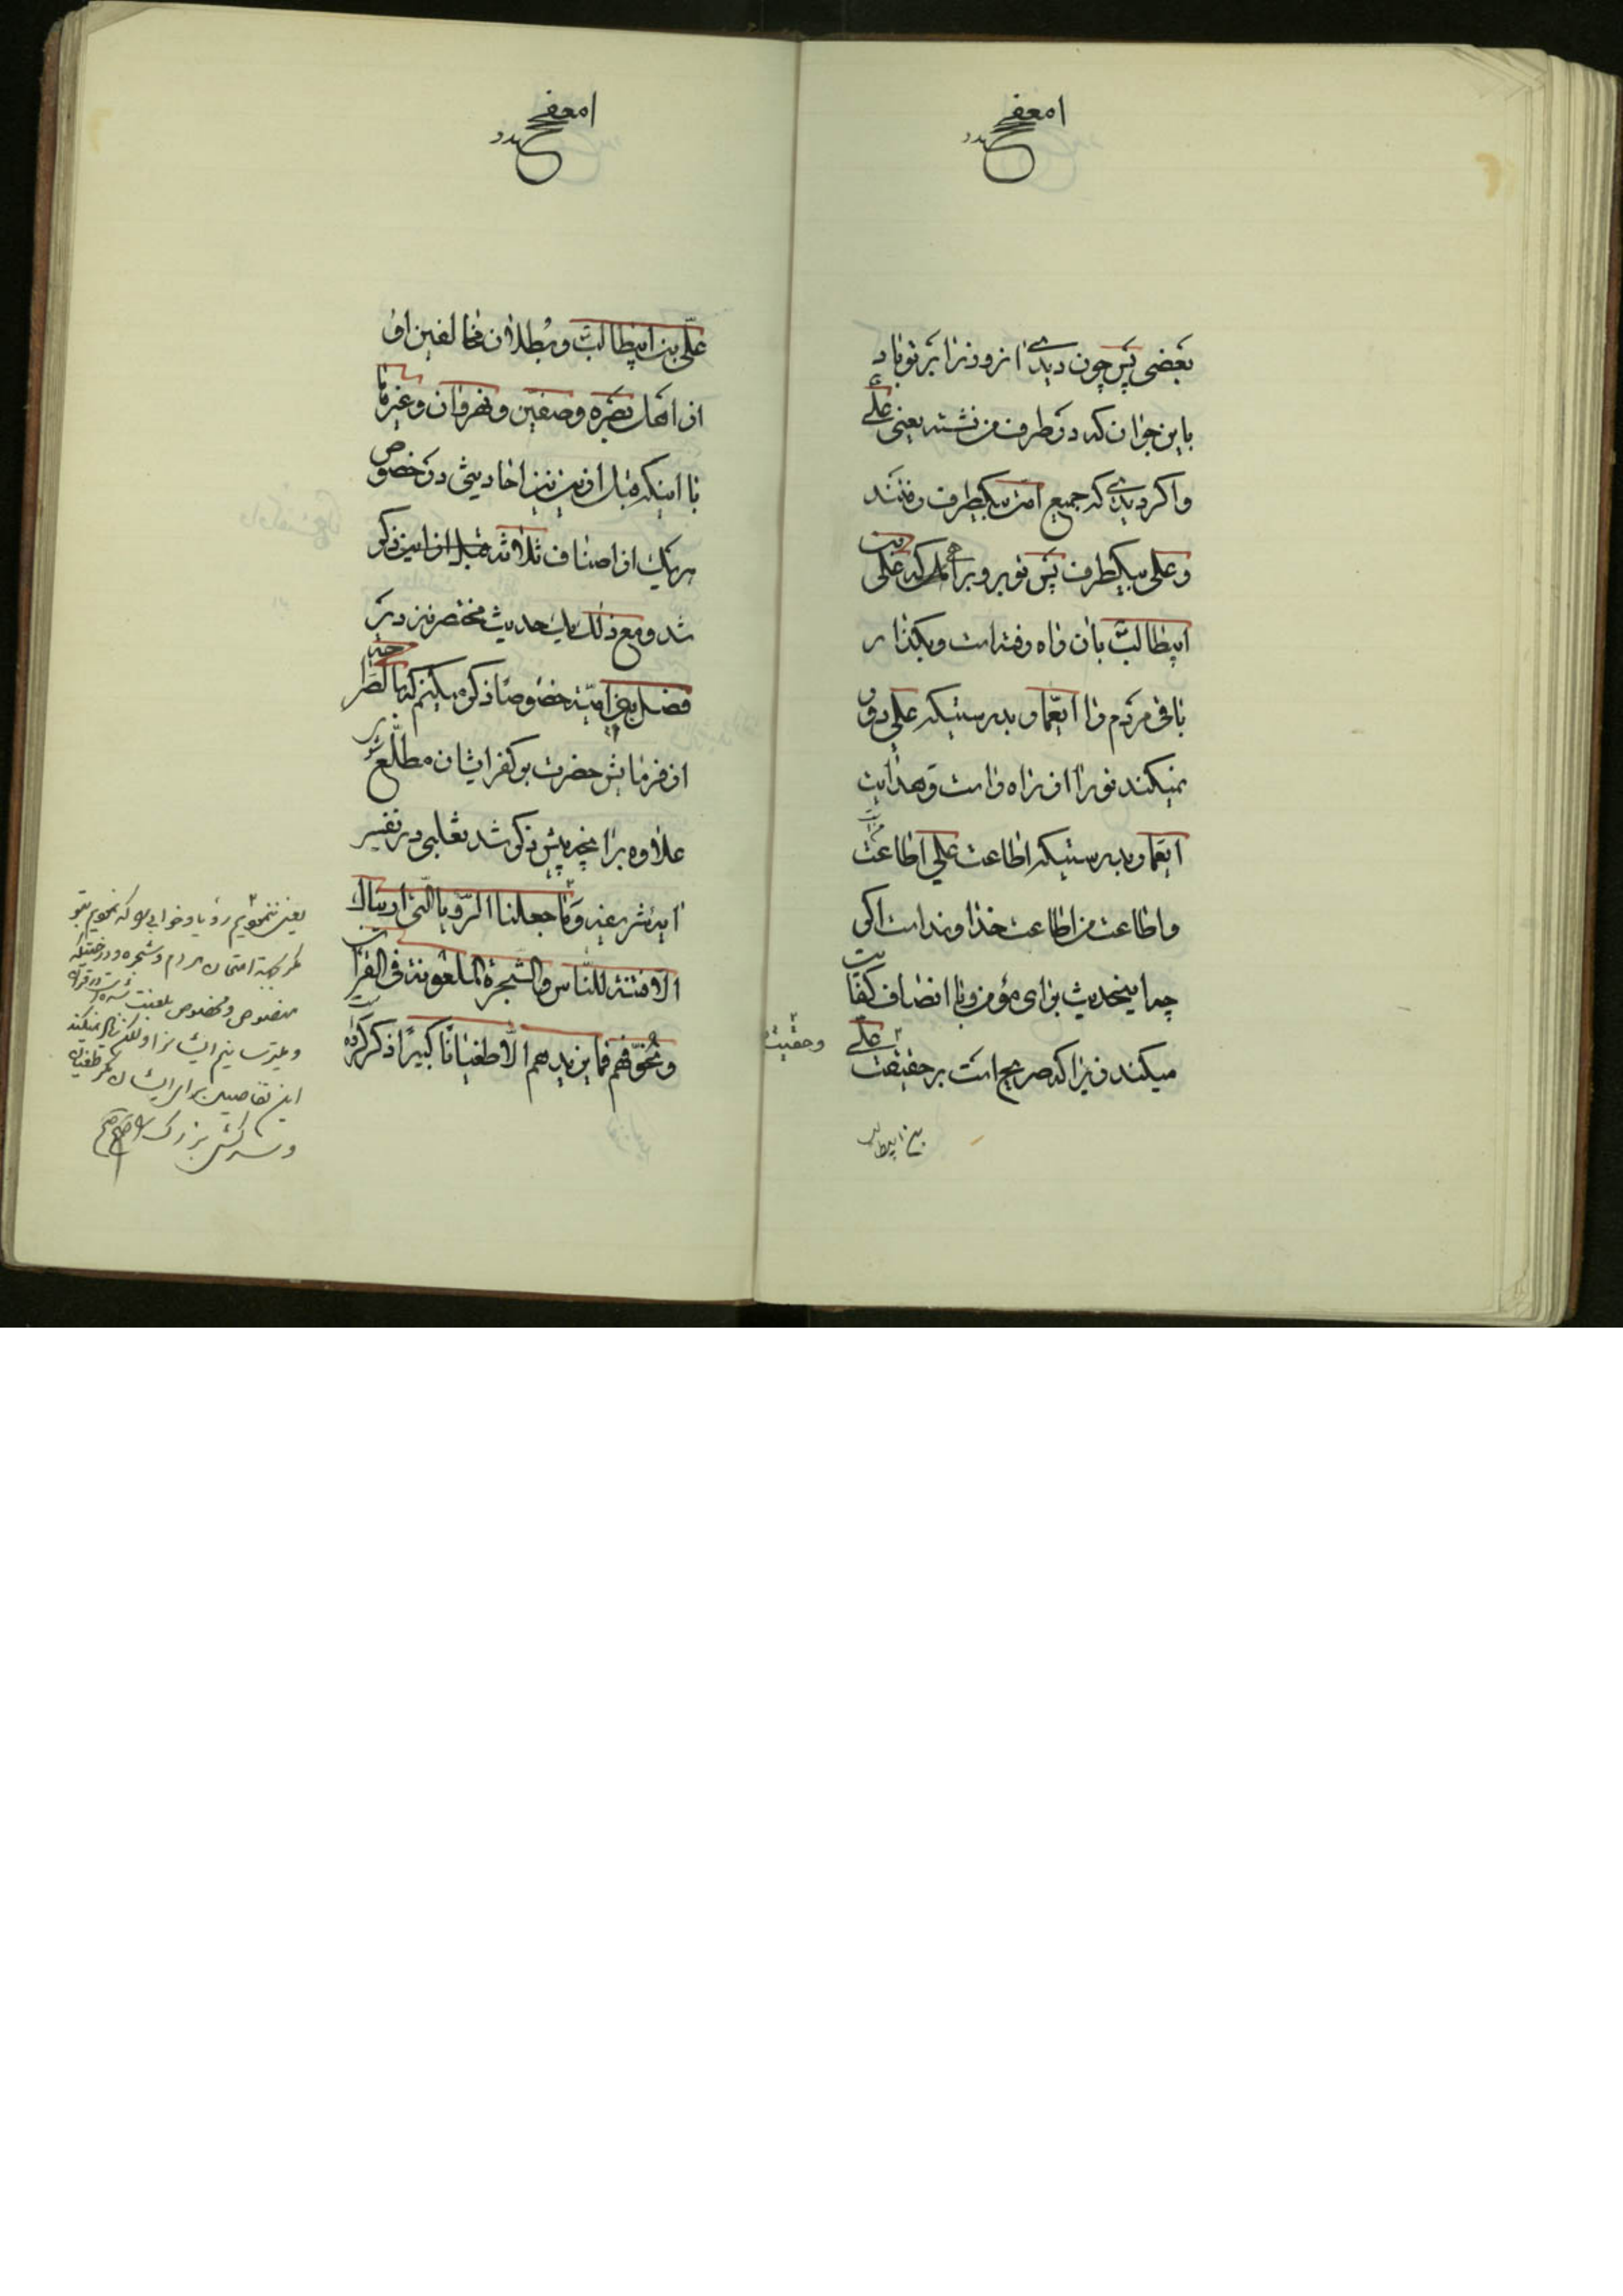 بعضی پس چون دیدی آنروز را بر تو باد
باین جوان که در طرف من نشسته یعنی علی ع
و اگر دیدی که جمیع امت بیکطرف رفتند
و علی بیکطرف پس تو برو براهی که علی بن
ابیطالب بان راه رفته است و بگذار
باقی مردم را ایعمار و بدرستیکه علی دور
نمیکند تو را از راه راست و هدایت
ایعمار بدرستیکه اطاعت علی اطاعت من است
و اطاعت من اطاعت خدا وند است اگر
چه اینحدیث برای مؤمن با انصاف کفایت
میکند زیرا که صریح است بر حقیقت علی
وحقیت
بن ابیطالب
علی بن ابیطالب و بطلان مخالفین او
از اهل بصره و صفین و نهروان و غیرها
با اینکه قبل ازین نیز احادیثی در خصوص
هر یک از اصناف ثلاثه قبل از این ذکر
شد و مع ذلک یک حدیث مختصر نیز در
فضل بنی امیه خصوصا ذکر میکنم که
از فرمایش حضرت بر کفر ایشان مطلع شوند
علاوه بر آنچه پیش ذکر شد ثعلبی در تفسیر
آیه شریفه وما جعلنا الرؤیا التی اریناک
الا فتنة للناس والشجرة الملعونة فی القرآن
ونخوفهم فما یزیدهم الا طغیانا کبیرا ذکر کرده
یعنی ننمودیم رؤیا و خوابی که نمودیم بتو
مگر بجهة امتحان مردم و شجره و درختیکه
منصوص و مخصوص بلعنت شده است در قرآن
و میترسانیم ایشانرا ولکن زیاد نمیکند
این برای ایشان مگر طغیان
و سرکشی بزرگ